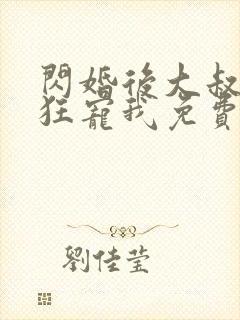 閃婚後大叔
狂寵我免費
劉佳瑩